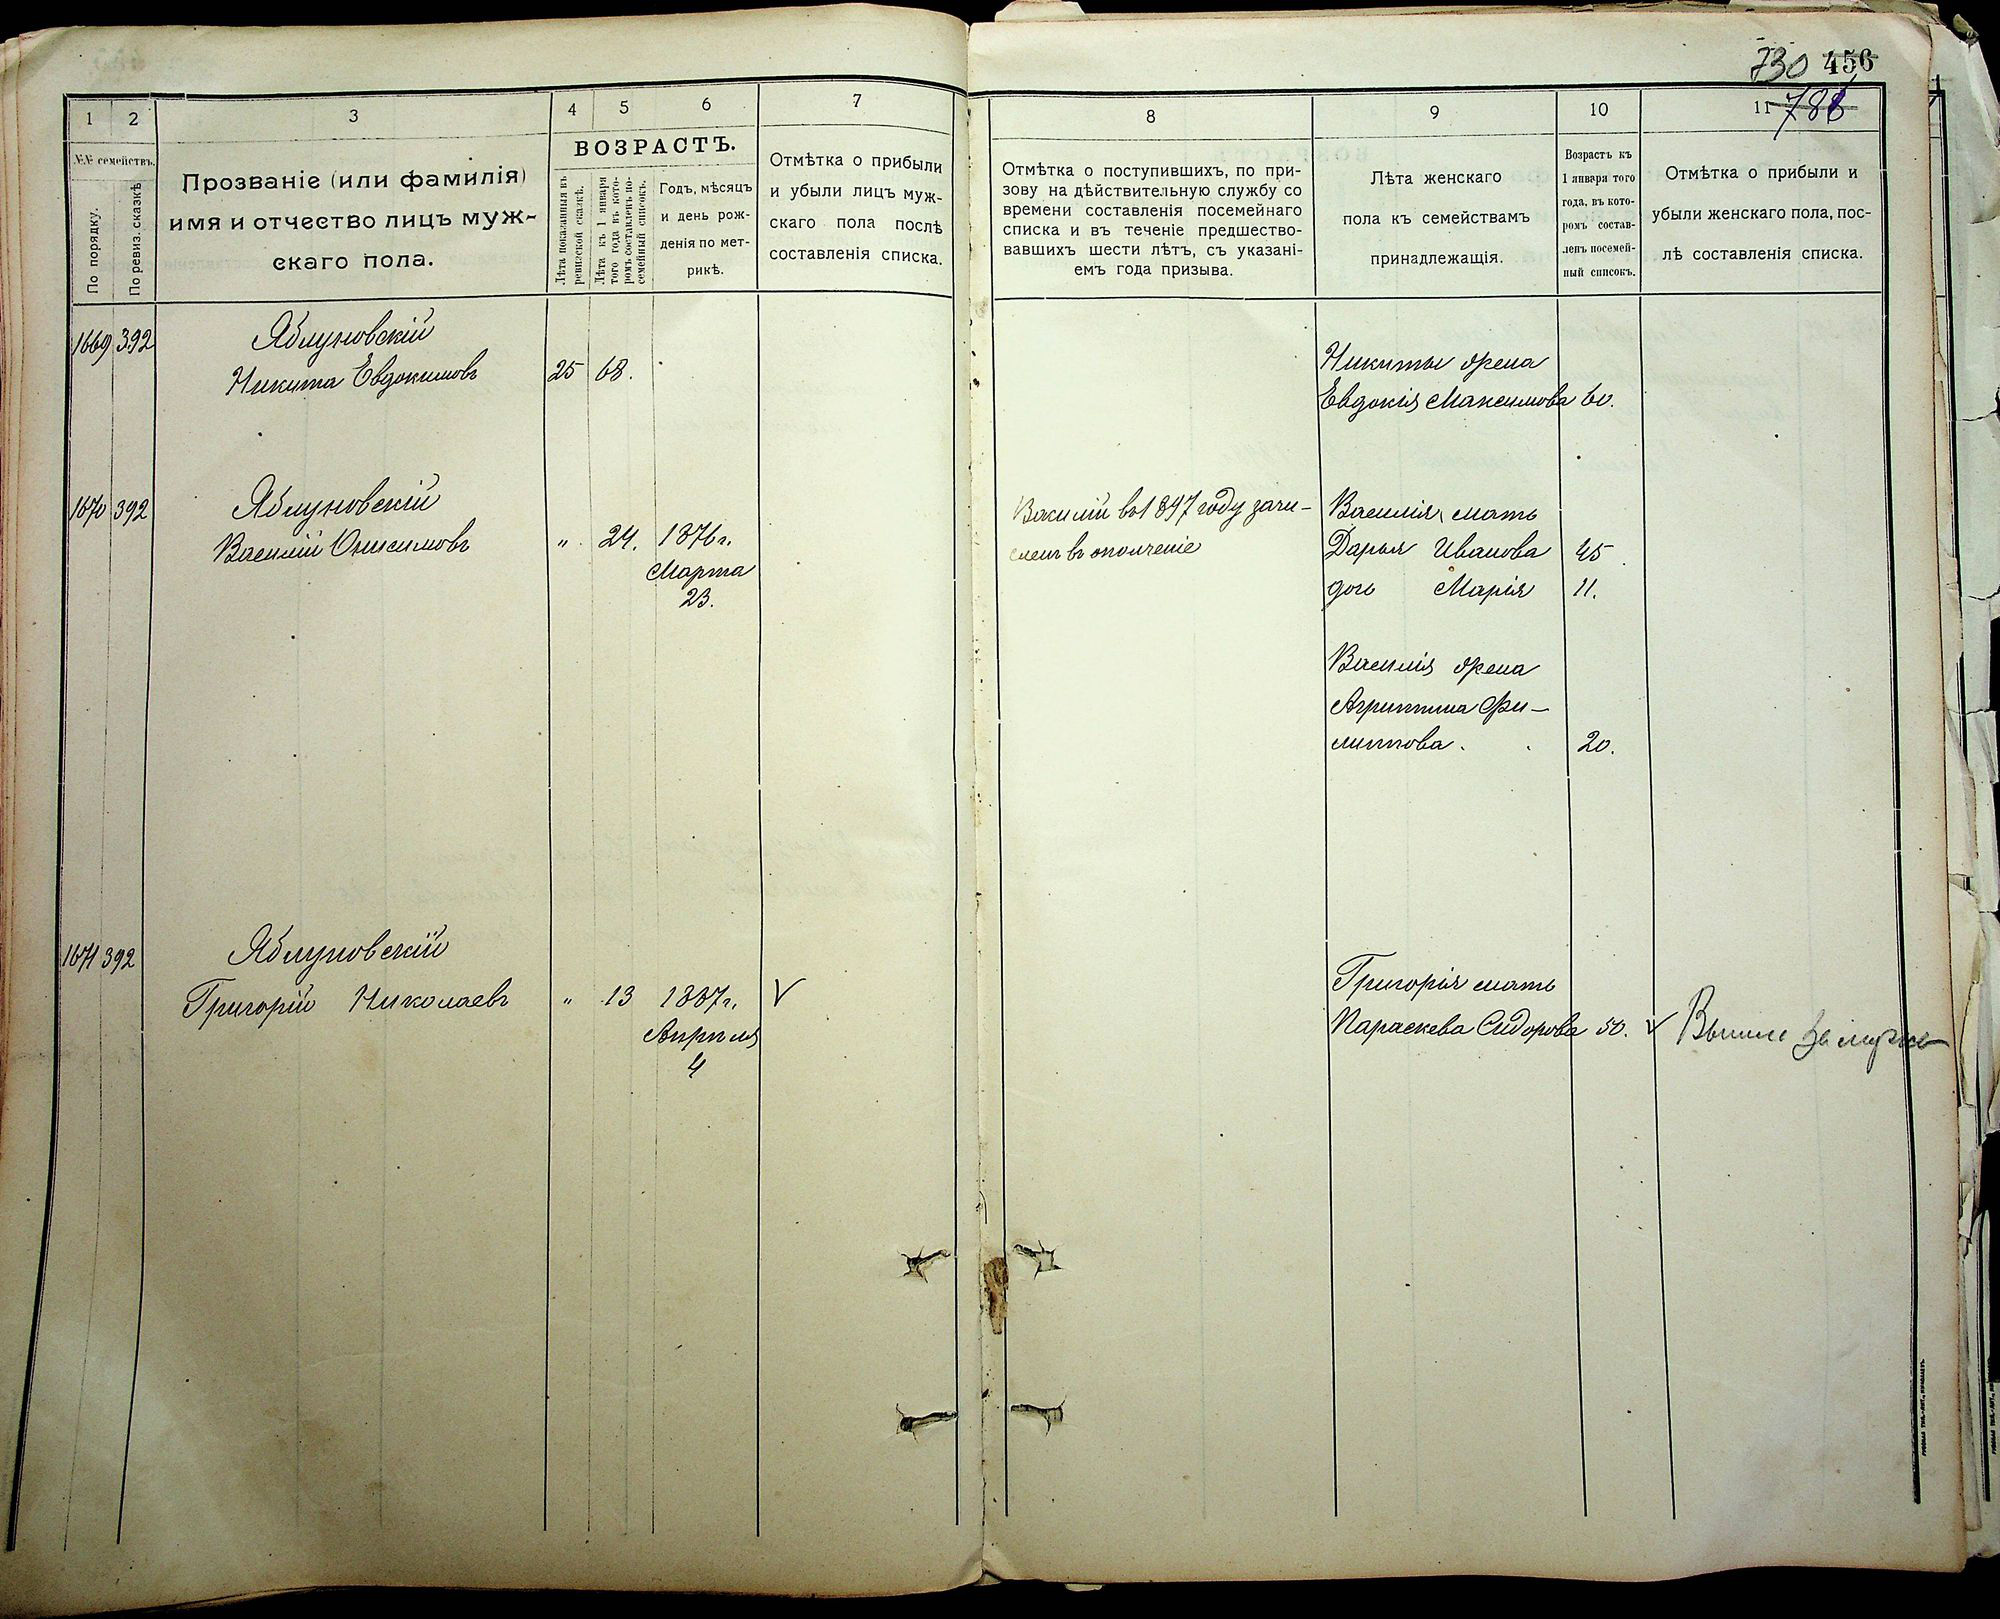 730 456
788
1 2 3 4 5 6 7
№№ семействъ.
По порядку.
По ревиз. сказкѣ
Прозваніе (или фамилія)
имя и отчество лицъ муж-
скаго пола.
ВОЗРАСТЪ.
Лѣта показанныя въ
ревизской сказкѣ.
Лѣта къ 1 января
того года въ кото-
ромъ составленъ по-
семейный списокъ.
Годъ, мѣсяцъ
и день рож-
денія по мет-
рикѣ.
Отмѣтка о прибыли
и убыли лицъ муж-
скаго пола послѣ
составленія списка.
8 9 10 11
Отмѣтка о поступившихъ, по при-
зову на дѣйствительную службу со
времени составленія посемейнаго
списка и въ теченіе предшество-
вавшихъ шести лѣтъ, съ указані-
емъ года призыва.
Лѣта женскаго
пола къ семействамъ
принадлежащія.
Возрастъ къ
1 января того
года, въ кото-
ромъ состав-
ленъ посемей-
ный списокъ.
Отмѣтка о прибыли и
убыли женскаго пола, пос-
лѣ составленія списка.
1669 392 Яблуновскій
Никита Евдокимовъ 25 68.
Никиты жена
Евдокія Максимова 60.
1670 392 Яблуновскій
Василій Онисимовъ " 24. 1876 г.
Марта
23.
Василій въ 1897 году зачи-
сленъ въ ополченіе
Василія мать
Дарья Иванова 45
дочь Марія 11.
Василія жена
Агриппина Фи-
липпова. 20.
1671 392 Яблуновскій
Григорій Николаевъ " 13 1887 г. V
Апрѣля
4
Григорія мать
Параскева Сидорова 50. V Вышла замужъ